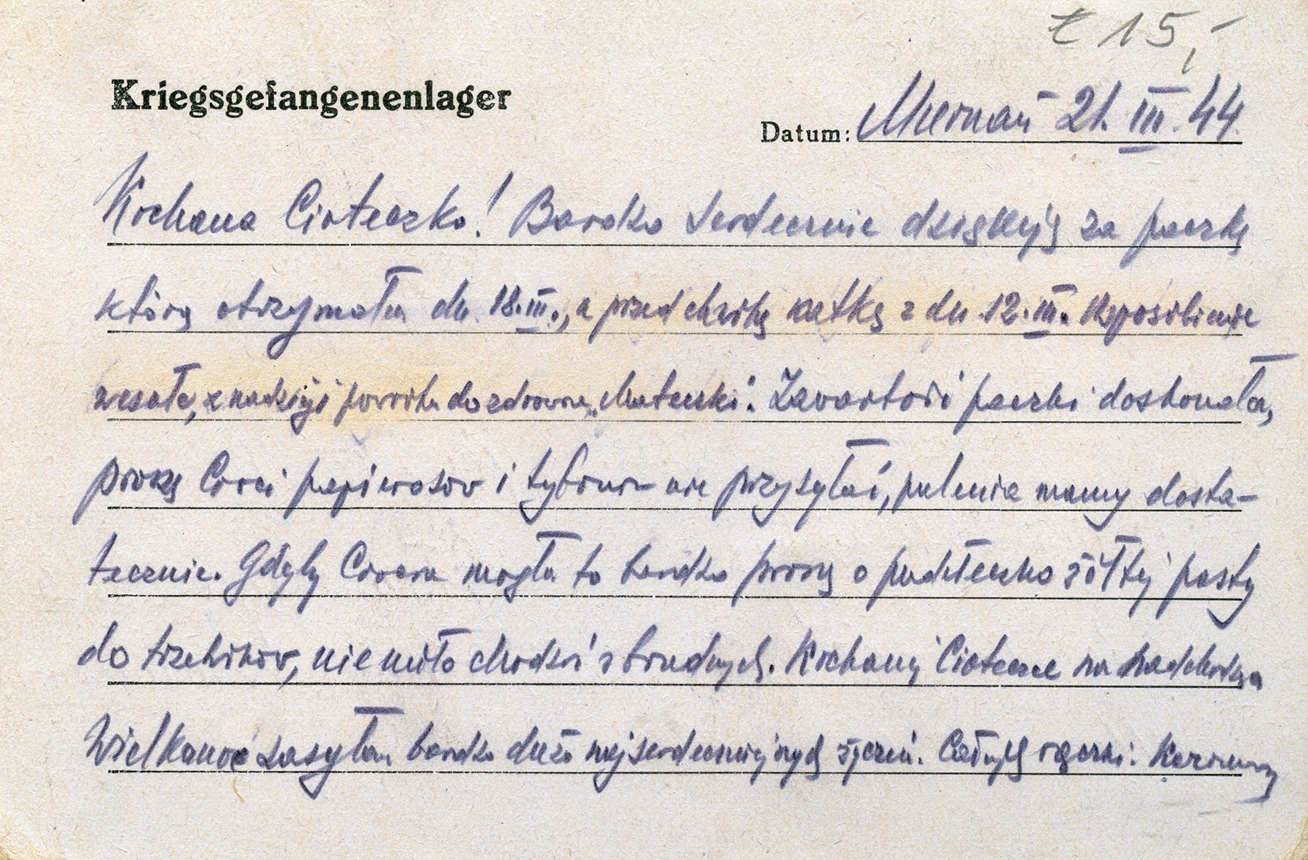 ł 15,-
Kriegsgefangenenlager
Datum: Murnau 21. III. 44.
Kochana Cioteczko! Bardzo serdecznie dziękuję za paczkę
którą otrzymałem dn. 18.III., a przed chwilą kartkę z dn. 12.III. Usposobienie
wesołe, z nadzieji powrotu do zdrowia „Mateczki". Zawartość paczki doskonała,
proszę Cioci papierosów i tytoniu nie przysyłać, palenia mamy dosta-
tecznie. Gdyby Ciocia mogła to bardzo proszę o pudełeczko żółtej pasty
do trzewików, nie miło chodzić w brudnych. Kochanej Cioteczce na nadchodzą
Wielkanoc zasyłam bardzo dużo najserdeczniejszych życzeń. Całuję rączki.